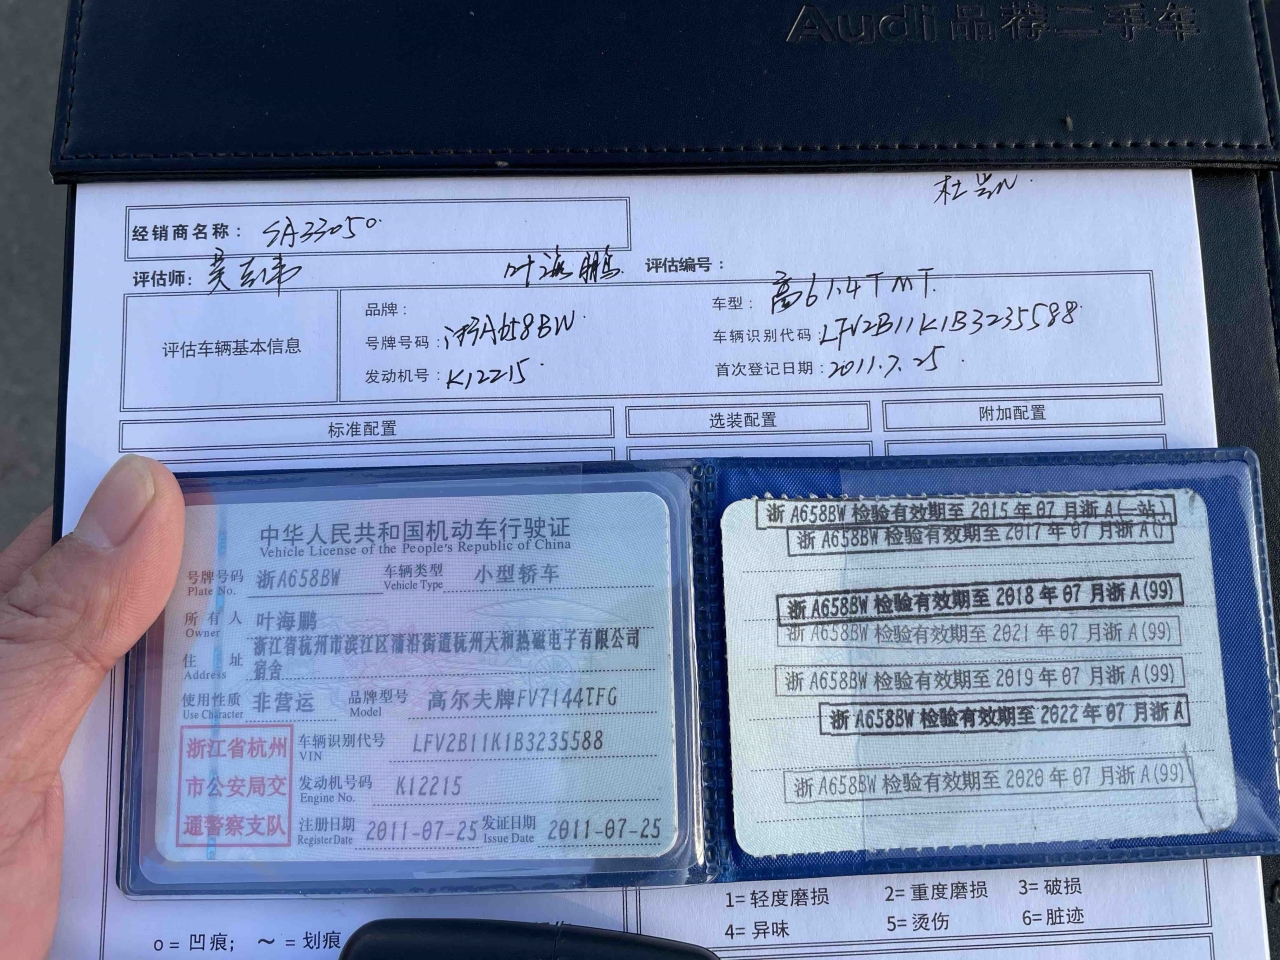 Audi 品荐二手车
杜
经销商名称: SA33050
评估师: 吴 叶海鹏 评估编号:
评估车辆基本信息
品牌: 车型: 高6 1.4T MT
号牌号码: 浙A658BW 车辆识别代码: LFV2B11K1B3235588
发动机号: K12215 首次登记日期: 2011.7.25
标准配置 选装配置 附加配置
中华人民共和国机动车行驶证
Vehicle License of the People's Republic of China
号牌号码 浙A658BW 车辆类型 小型轿车
Plate No. Vehicle Type
所有人 叶海鹏
Owner
住址 浙江省杭州市滨江区浦沿街道杭州大和热磁电子有限公司
Address 宿舍
使用性质 非营运 品牌型号 高尔夫牌FV7144TFG
Use Character Model
浙江省杭州
市公安局交
通警察支队
车辆识别代号 LFV2B11K1B3235588
VIN
发动机号码 K12215
Engine No.
注册日期 2011-07-25 发证日期 2011-07-25
Register Date Issue Date
浙A658BW 检验有效期至 2015年07月浙A(一站)
浙A658BW 检验有效期至 2017年07月浙A()
浙A658BW 检验有效期至 2018年07月浙A(99)
浙A658BW 检验有效期至 2021年07月浙A(99)
浙A658BW 检验有效期至 2019年07月浙A(99)
浙A658BW 检验有效期至 2022年07月浙A
浙A658BW 检验有效期至 2020年07月浙A(99)
1=轻度磨损 2=重度磨损 3=破损
4=异味 5=烫伤 6=脏迹
o=凹痕; ~=划痕